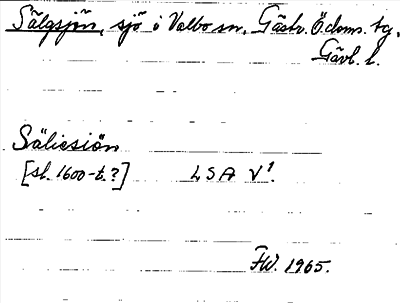 Sälgsjön, sjö i Valbo sn, Gästr. Ö. doms. tg,
Gävl. l.
Säliesiön
[sl. 1600-t.?] LSA V¹.
FW. 1965.